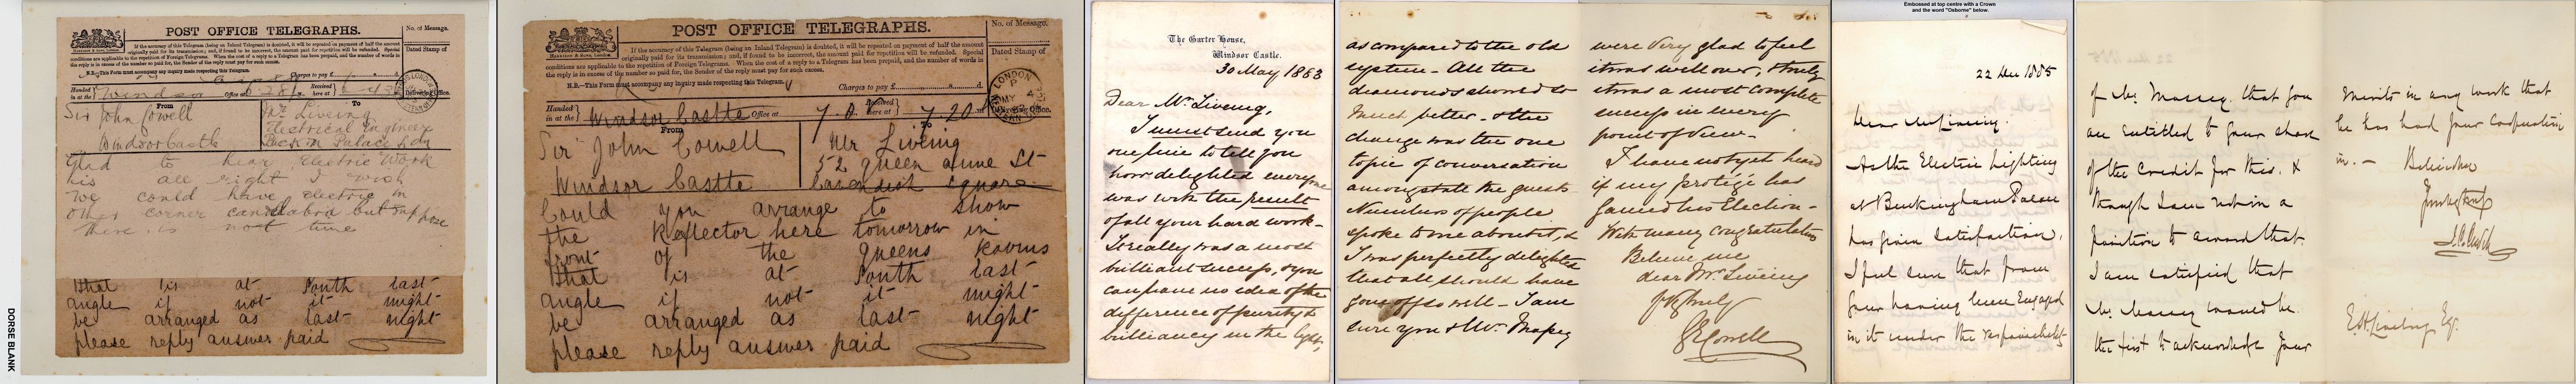 DORSE BLANK
POST OFFICE TELEGRAPHS.
No. of Message.
If the accuracy of this Telegram (being an Inland Telegram) is doubted, it will be repeated on payment of half the amount
originally paid for its transmission; and, if found to be incorrect, the amount paid for repetition will be refunded. Special
conditions are applicable to the repetition of Foreign Telegrams. When the cost of a reply to a Telegram has been prepaid, and the number of words in
the reply is in excess of the number so paid for, the Sender of the reply must pay for such excess.
Dated Stamp of
N.B.—This Form must accompany any inquiry made respecting this Telegram.
Charges to pay £
Handed in at the
Windsor
Office at
Received here at
Delivering Office.
From
To
Sir John Cowell
Mr Liveing
Electrical Engineer
Windsor Castle
Buckm Palace Ldn
Glad to hear Electric Work
is all right I wish
We could have electric in
other corner candelabra but suppose
there is not time
that is at South East
angle if not it might
be arranged as last night
please reply answer paid
POST OFFICE TELEGRAPHS.
No. of Message.
If the accuracy of this Telegram (being an Inland Telegram) is doubted, it will be repeated on payment of half the amount
originally paid for its transmission; and, if found to be incorrect, the amount paid for repetition will be refunded. Special
conditions are applicable to the repetition of Foreign Telegrams. When the cost of a reply to a Telegram has been prepaid, and the number of words in
the reply is in excess of the number so paid for, the Sender of the reply must pay for such excess.
Dated Stamp of
N.B.—This Form must accompany any inquiry made respecting this Telegram.
Charges to pay £
LONDON
Handed in at the
Windsor Castle
Office at
7.0
Received here at
7.20
Delivering Office.
From
To
Sir John Cowell
Mr Liveing
52 Queen Anne St
Windsor Castle
Cavendish Square
Could you arrange to show
the Reflector here tomorrow in
front of the Queens Rooms
that is at South East
angle if not it might
be arranged as last night
please reply answer paid
The Garter House,
Windsor Castle.
30 May 1883
Dear Mr Liveing,
I must send you
one line to tell you
how delighted everyone
was with the result
of all your hard work -
It really was a most
brilliant success, & you
can have no idea of the
difference of purity &
brilliancy in the light,
as compared to the old
system - All the
diamonds showed so
much better - & the
change was the one
topic of conversation
amongst all the guests
Numbers of people
spoke to me about it, &
I was perfectly delighted
that all should have
gone off so well - I am
sure you & Mr Massey
were very glad to feel
it was well over, & truly
it was a most complete
success in every
point of view -
I have not yet heard
if my protégé has
gained his Election -
With many congratulations
Believe me
dear Mr Liveing
Cowell
Embossed at top centre with a Crown
and the word "Osborne" below.
22 Dec 1885
Dear Mr Liveing.
As the Electric lighting
at Buckingham Palace
has given satisfaction,
I feel sure that from
your having been engaged
in it under the responsibility
of Mr. Massey that you
are entitled to your share
of the credit for this. &
though I am not in a
position to award that
I am satisfied that
Mr. Massey would be
the first to acknowledge your
merits in any work that
he has had your cooperation
in. -
Believe me